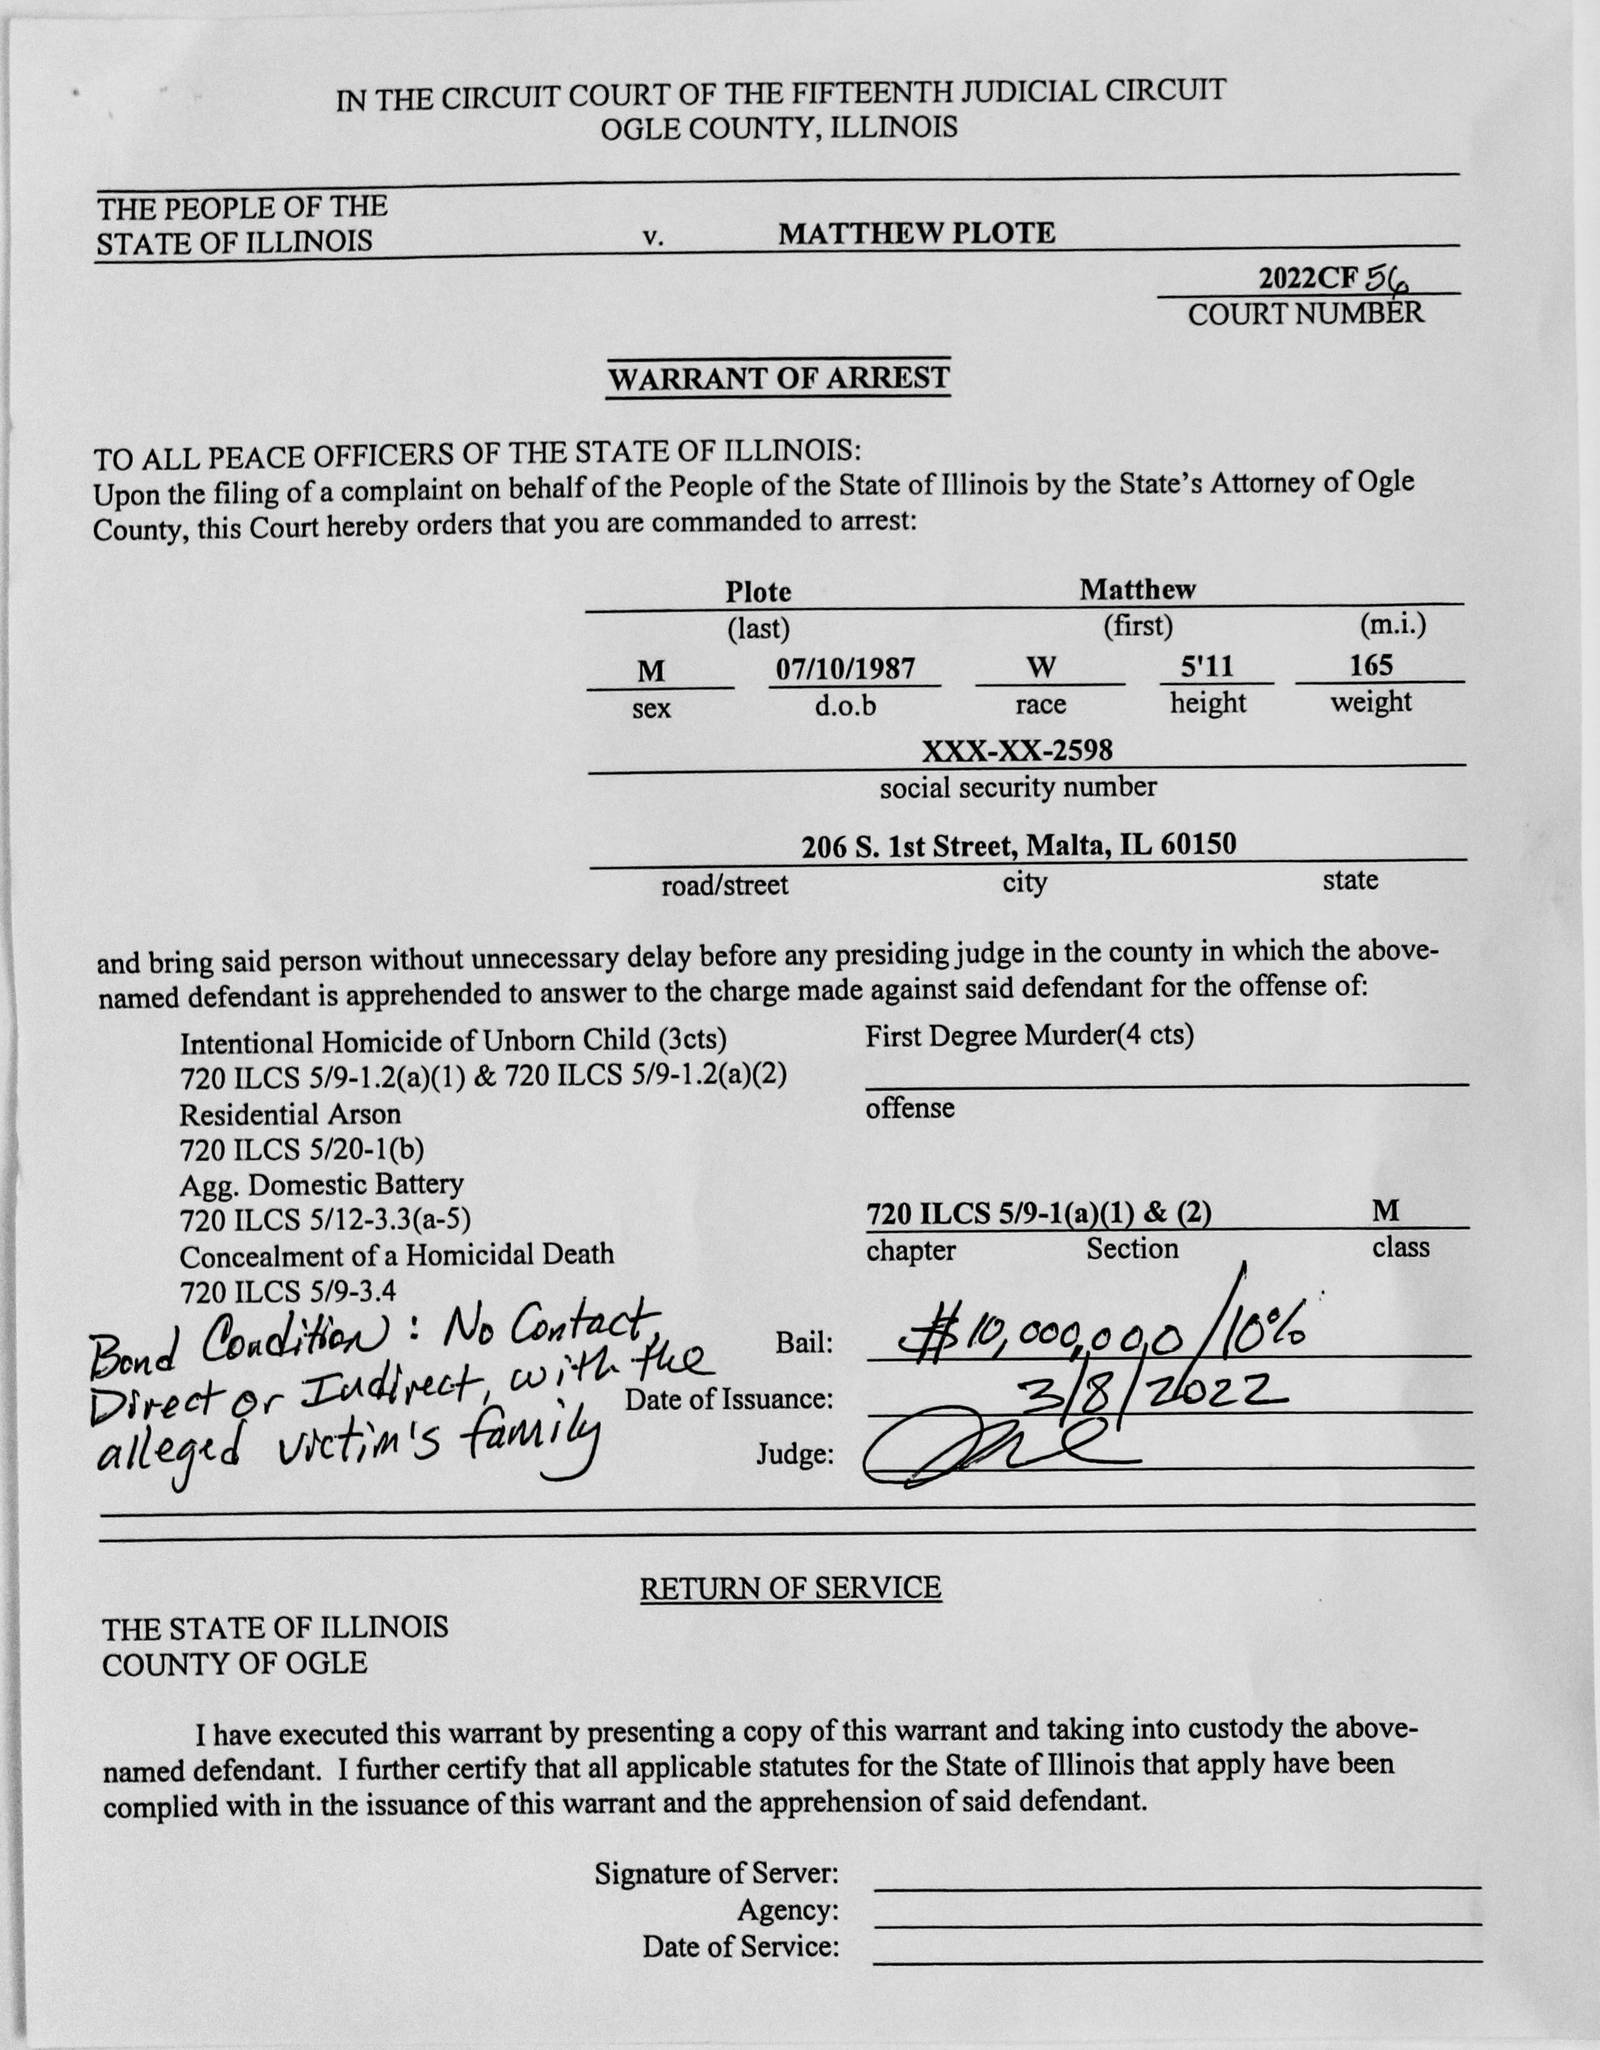 IN THE CIRCUIT COURT OF THE FIFTEENTH JUDICIAL CIRCUIT
OGLE COUNTY, ILLINOIS
THE PEOPLE OF THE
STATE OF ILLINOIS v. MATTHEW PLOTE
2022CF 56
COURT NUMBER
WARRANT OF ARREST
TO ALL PEACE OFFICERS OF THE STATE OF ILLINOIS:
Upon the filing of a complaint on behalf of the People of the State of Illinois by the State's Attorney of Ogle
County, this Court hereby orders that you are commanded to arrest:
Plote Matthew
(last) (first) (m.i.)
M 07/10/1987 W 5'11 165
sex d.o.b race height weight
XXX-XX-2598
social security number
206 S. 1st Street, Malta, IL 60150
road/street city state
and bring said person without unnecessary delay before any presiding judge in the county in which the above-
named defendant is apprehended to answer to the charge made against said defendant for the offense of:
Intentional Homicide of Unborn Child (3cts) First Degree Murder(4 cts)
720 ILCS 5/9-1.2(a)(1) & 720 ILCS 5/9-1.2(a)(2)
Residential Arson offense
720 ILCS 5/20-1(b)
Agg. Domestic Battery
720 ILCS 5/12-3.3(a-5) 720 ILCS 5/9-1(a)(1) & (2) M
Concealment of a Homicidal Death chapter Section class
720 ILCS 5/9-3.4
Bond Condition: No Contact, Bail: $10,000,000/10%
Direct or Indirect, with the Date of Issuance: 3/8/2022
alleged victim's family Judge:
RETURN OF SERVICE
THE STATE OF ILLINOIS
COUNTY OF OGLE
I have executed this warrant by presenting a copy of this warrant and taking into custody the above-
named defendant. I further certify that all applicable statutes for the State of Illinois that apply have been
complied with in the issuance of this warrant and the apprehension of said defendant.
Signature of Server:
Agency:
Date of Service: